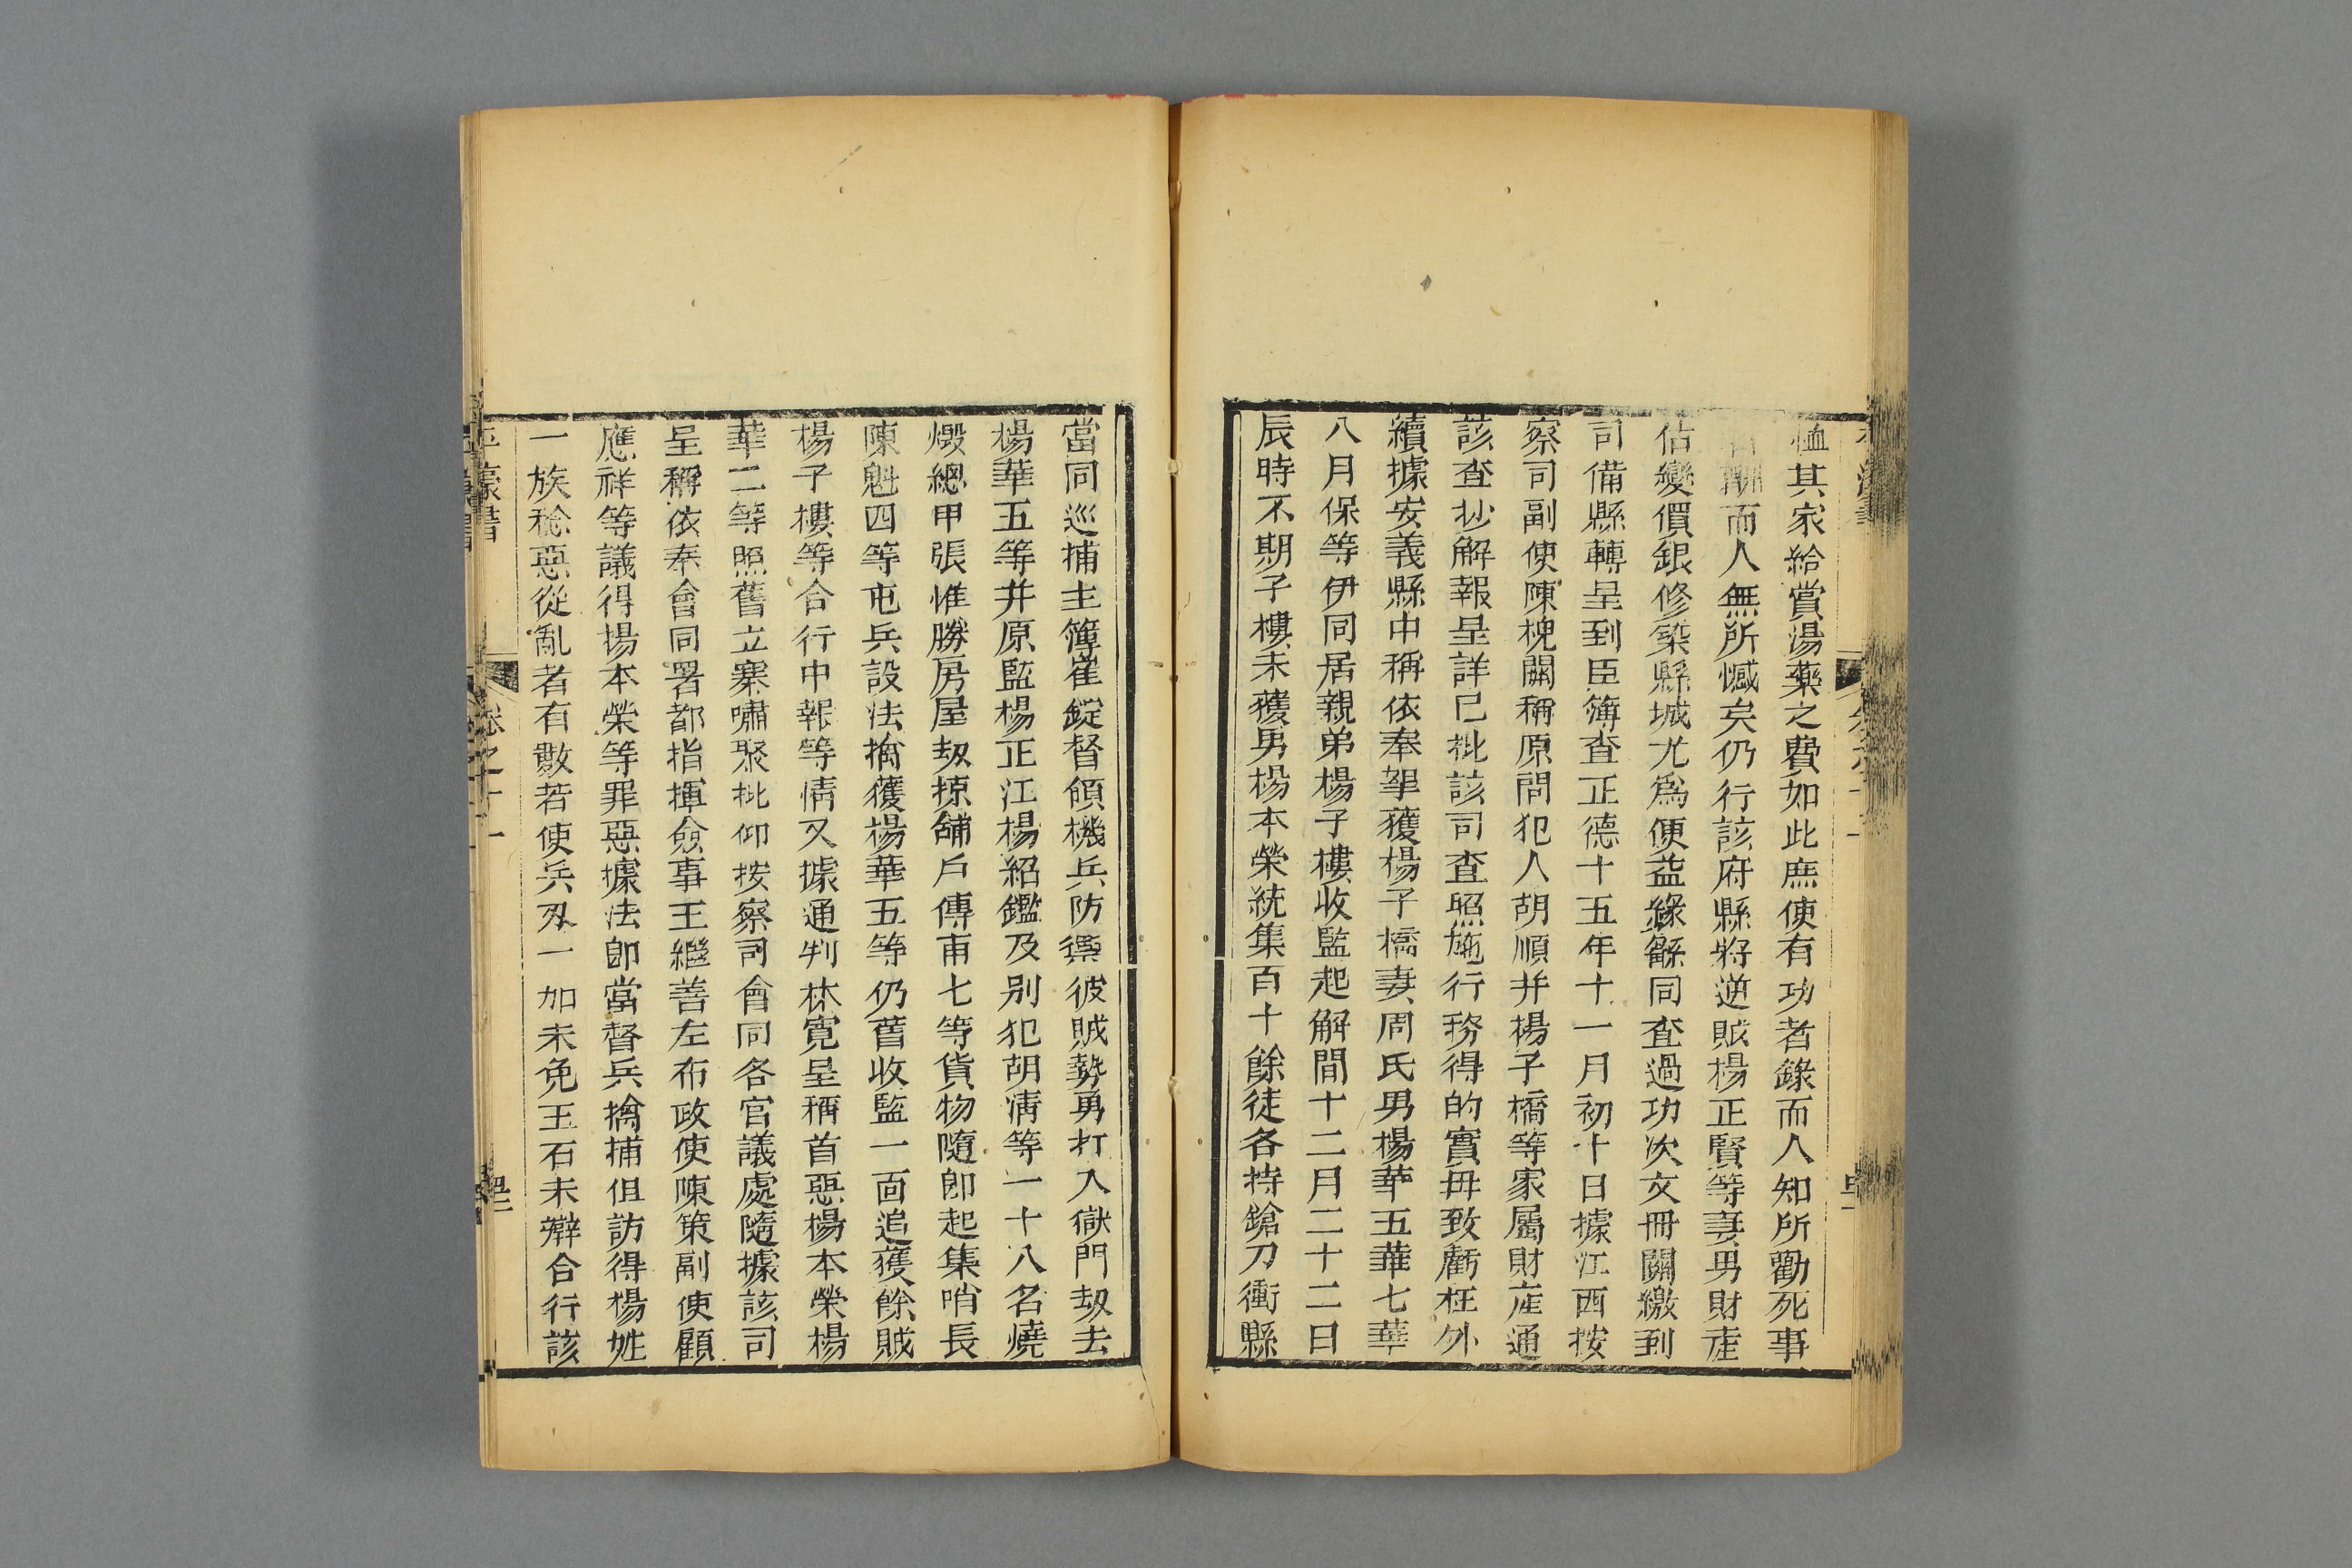 恤其家給賞湯藥之費如此庶使有功者錄而人知所勸死事
酬而人無所憾矣仍行該府縣將逆賊楊正賢等妻男財產
估變價銀修築縣城尤爲便益緣繇同查過功次文冊關繳到
司備縣轉呈到臣簿查正德十五年十一月初十日據江西按
察司副使陳槐關稱原問犯人胡順并楊子橋等家屬財產通
該查抄解報呈詳已批該司查照施行務得的實毋致虧枉外
續據安義縣申稱依奉挐獲楊子橋妻周氏男楊華五華七華
八月保等伊同居親弟楊子樓收監起解間十二月二十二日
辰時不期子樓未獲男楊本榮統集百十餘徒各持鎗刀衝縣
當同巡捕主簿崔錠督領機兵防禦彼賊勢勇打入獄門刼去
楊華五等并原監楊正江楊紹鑑及别犯胡清等一十八名燒
燬總甲張惟勝房屋刼掠舗戶傳甫七等貨物隨即起集哨長
陳魁四等屯兵設法擒獲楊華五等仍舊收監一面追獲餘賊
楊子樓等合行申報等情又據通判林寬呈稱首惡楊本榮楊
華二等照舊立寨嘯聚批仰按察司會同各官議處隨據該司
呈稱依奉會同署都指揮僉事王繼善左布政使陳策副使顧
應祥等議得揚本榮等罪惡據法卽當督兵擒捕但訪得楊姓
一族稔惡從亂者有數若使兵刄一加未免玉石未辯合行該
平濠書
卷之十一